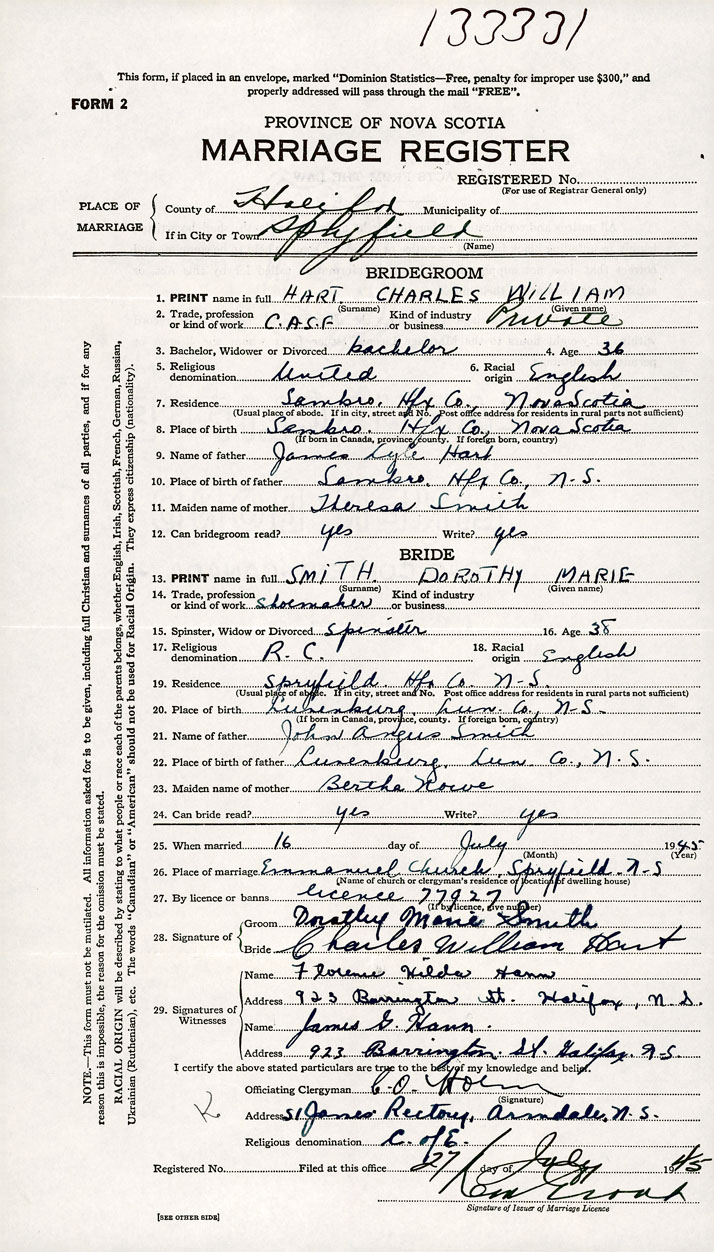 133331
This form, if placed in an envelope, marked "Dominion Statistics—Free, penalty for improper use $300," and
properly addressed will pass through the mail "FREE".
FORM 2
PROVINCE OF NOVA SCOTIA
MARRIAGE REGISTER
REGISTERED No.
(For use of Registrar General only)
PLACE OF MARRIAGE
County of Halifax Municipality of
If in City or Town Spryfield
(Name)
BRIDEGROOM
1. PRINT name in full HART CHARLES WILLIAM
(Surname) (Given name)
2. Trade, profession or kind of work C.A.S.F Kind of industry or business Private
3. Bachelor, Widower or Divorced bachelor 4. Age 36
5. Religious denomination United 6. Racial origin English
7. Residence Sambro. Hfx Co., Nova Scotia
(Usual place of abode. If in city, street and No. Post office address for residents in rural parts not sufficient)
8. Place of birth Sambro. Hfx Co., Nova Scotia
(If born in Canada, province, county. If foreign born, country)
9. Name of father James Lyle Hart
10. Place of birth of father Sambro. Hfx Co., N-S.
11. Maiden name of mother Theresa Smith
12. Can bridegroom read? yes Write? yes
BRIDE
13. PRINT name in full SMITH. DOROTHY MARIE
(Surname) (Given name)
14. Trade, profession or kind of work Shoemaker Kind of industry or business
15. Spinster, Widow or Divorced Spinster 16. Age 38
17. Religious denomination R.C. 18. Racial origin English
19. Residence Spryfield. Hfx Co. N-S.
(Usual place of abode. If in city, street and No. Post office address for residents in rural parts not sufficient)
20. Place of birth Lunenburg, Lun. Co., N-S-
(If born in Canada, province, county. If foreign born, country)
21. Name of father John Angus Smith
22. Place of birth of father Lunenburg, Lun Co., N.S.
23. Maiden name of mother Bertha
24. Can bride read? yes Write? yes
25. When married 16 day of July 1945
(Month) (Year)
26. Place of marriage Emmanuel Church, Spryfield. N-S
(Name of church or clergyman's residence or location of dwelling house)
27. By licence or banns licence 77927
(If by licence, give number)
28. Signature of
Groom Dorothy Marie Smith
Bride Charles William Hart
29. Signatures of Witnesses
Name Florence Hilda Hann
Address 923 Barrington St. Halifax, N.S.
Name James G. Hann.
Address 923 Barrington. St. Halifax. N.S.
I certify the above stated particulars are true to the best of my knowledge and belief.
Officiating Clergyman
(Signature)
Address St James Rectory, Armdale, N.S.
Religious denomination C. of E.
Registered No. Filed at this office 27 day of July 1945
Signature of Issuer of Marriage Licence
[SEE OTHER SIDE]
NOTE.—This form must not be mutilated. All information asked for is to be given, including full Christian and surnames of all parties, and if for any
reason this is impossible, the reason for the omission must be stated.
RACIAL ORIGIN will be described by stating to what people or race each of the parents belongs, whether English, Irish, Scottish, French, German, Russian,
Ukrainian (Ruthenian), etc. The words "Canadian" or "American" should not be used for Racial Origin. They express citizenship (nationality).